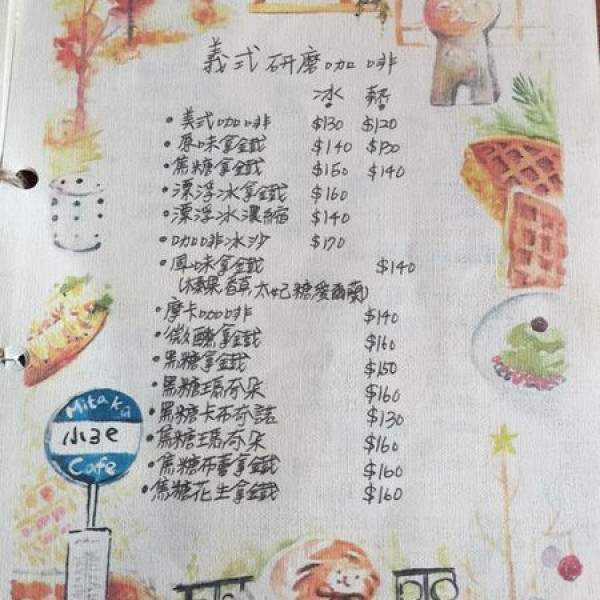 義式研磨咖啡
冰 熱
•美式咖啡 $130 $120
•原味拿鐵 $140 $130
•焦糖拿鐵 $150 $140
•漂浮冰拿鐵 $160
•漂浮冰濃縮 $140
•咖啡冰沙 $170
•風味拿鐵 $140
(榛果,香草,太妃糖,愛爾蘭)
•摩卡咖啡 $140
•微醺拿鐵 $160
•黑糖拿鐵 $150
•黑糖瑪奇朵 $160
•黑糖卡布奇諾 $130
•焦糖瑪奇朵 $160
•焦糖布蕾拿鐵 $160
•焦糖花生拿鐵 $160
Mitaka
小3e
Cafe